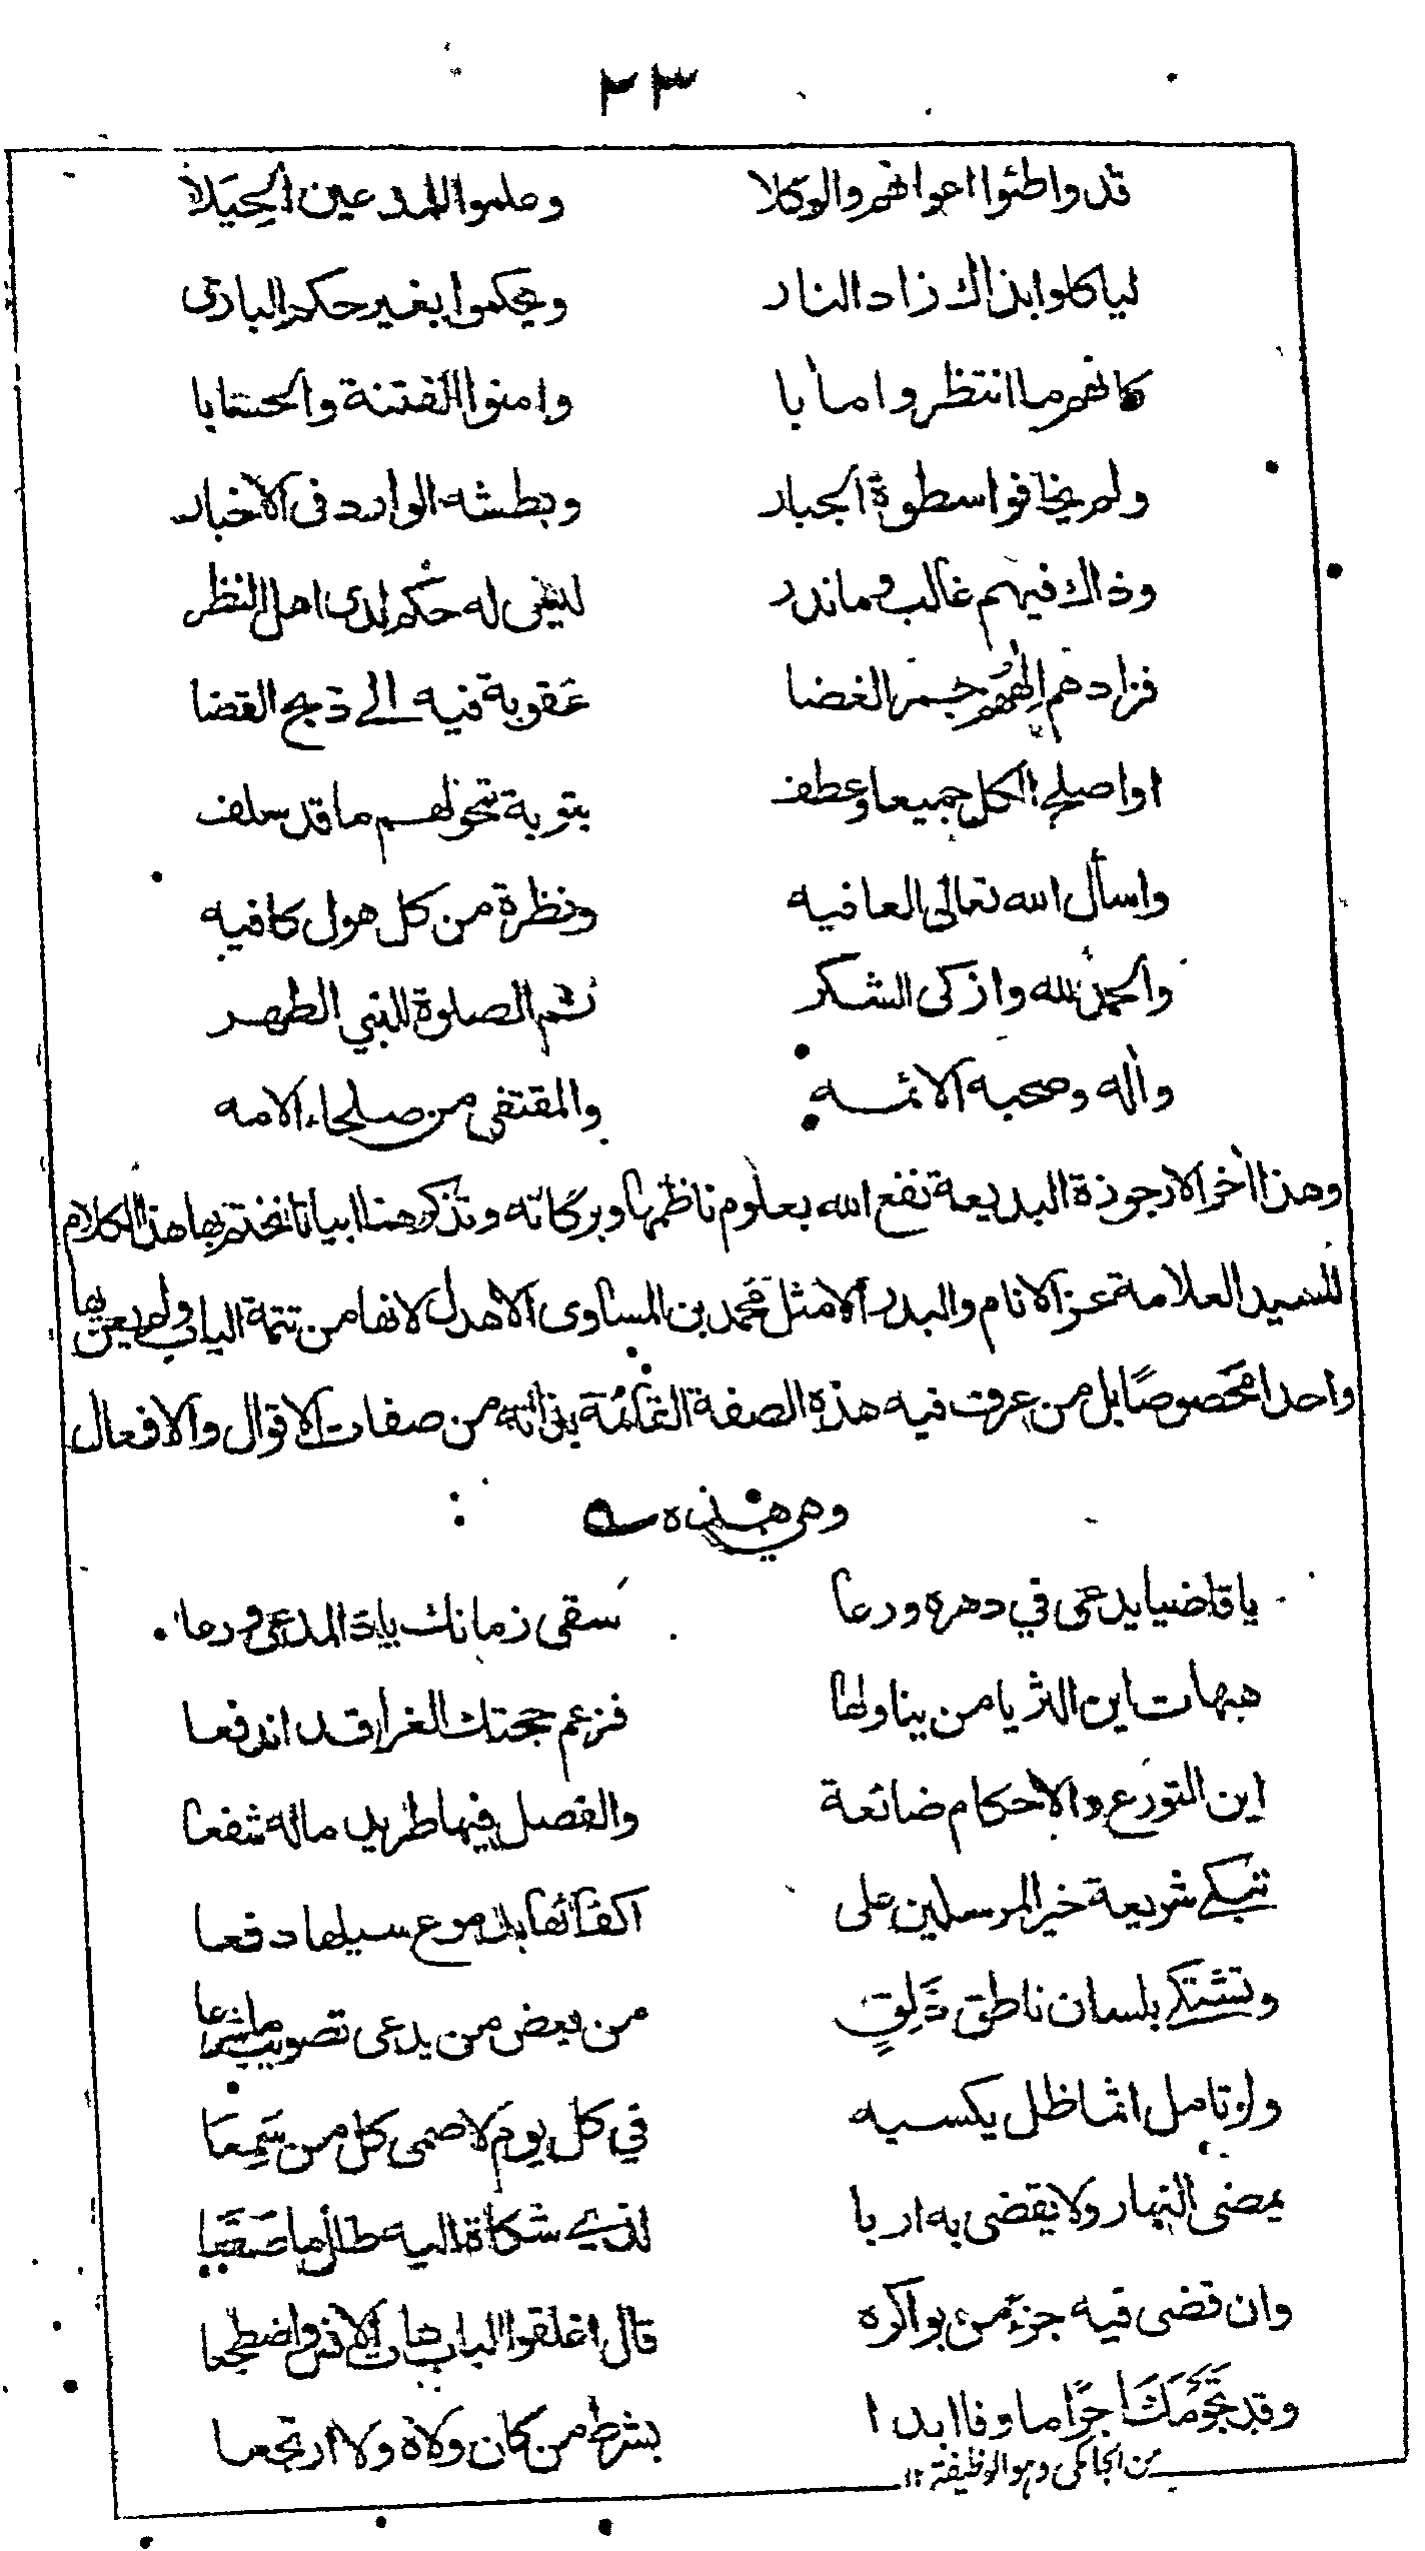 ٢٣
قد واطئوا اعوانهم والوكلا وعلموا المدعين الحِيَلا
لياكلوا بذاك زاد النار ويحكموا بغير حكم البارى
كانهم ما انتظروا مأبا وامنوا الفتنة والحسابا
ولم يخافوا سطوة الجبار وبطشه الوارد فى الاخبار
وذاك فيهم غالب وماندر له حكم لدى اهل النظر
فزادهم الههم جمر الغضا عقوبة فيه الى ذبح القضا
اواصلح الكل جميعا وعطف بتوبة تمحو لهم ما قد سلف
واسأل الله تعالى العافيه ونظرة من كل هول كافيه
والحمد لله وازكى الشكر ثم الصلوة للنبي الطهر
وأله وصحبه الائمه والمقتفى من صلحاء الامه
وهذا أخر الارجوزة البديعة نفع الله بعلوم ناظمها وبركاته ونذكر هنا ابياتا نختم بها هذا الكلام
للسيد العلامة عز الانام والبدر الامثل محمد بن المساوى الاهدل لانها من تتمة الباب ولم يعن بها
واحدا مخصوصًا بل من عرفت فيه هذه الصفة القائمة بذاته من صفات الاقوال والافعال
وهى هذه
يا قاضيا يدعى في دهره ورعا سقى زمانك ياذا المدعى ورعا
هيهات اين الثريا من يناولها فزعم حجتك الغرا قد اندفعا
اين التورع والاحكام ضائعة والفصل فيها طريد ماله شفعا
تبكي شريعة خير المرسلين على اكفائها بدموع سيلها دفعا
وتشتكي بلسان ناطق ذَلِقٍ من بعض من يدعى تصويب ما شرعا
ولو تامل اثما ظل يكسبه في كل يوم لاصمى كل من سَمِعَا
يمضى النهار ولا يقضى به اربا لذي شكاة اليه طال ما
وان قضى فيه جزء من بواكره قال اغلقوا الباب هات الاذن واضطجعا
وقد اجرا ما وفا ابدا بشرط من كان ولاه ولا ارتجعا
من الجامكى وهو الوظيفة ١٢